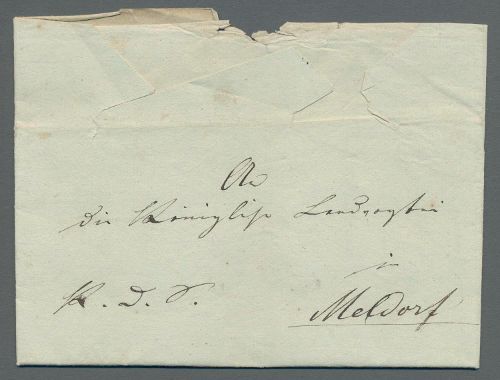 An
die Königliche Landvogtei
in
K. D. S.
Meldorf